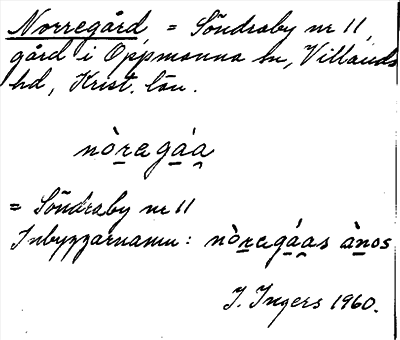 Norregård, = Söndraby nr 11,
gård i Oppmanna sn, Villands
hd, Krist. län.
nòregáa
= Söndraby nr 11
Inbyggarnamn: nòregáas ànos
I. Ingers 1960.